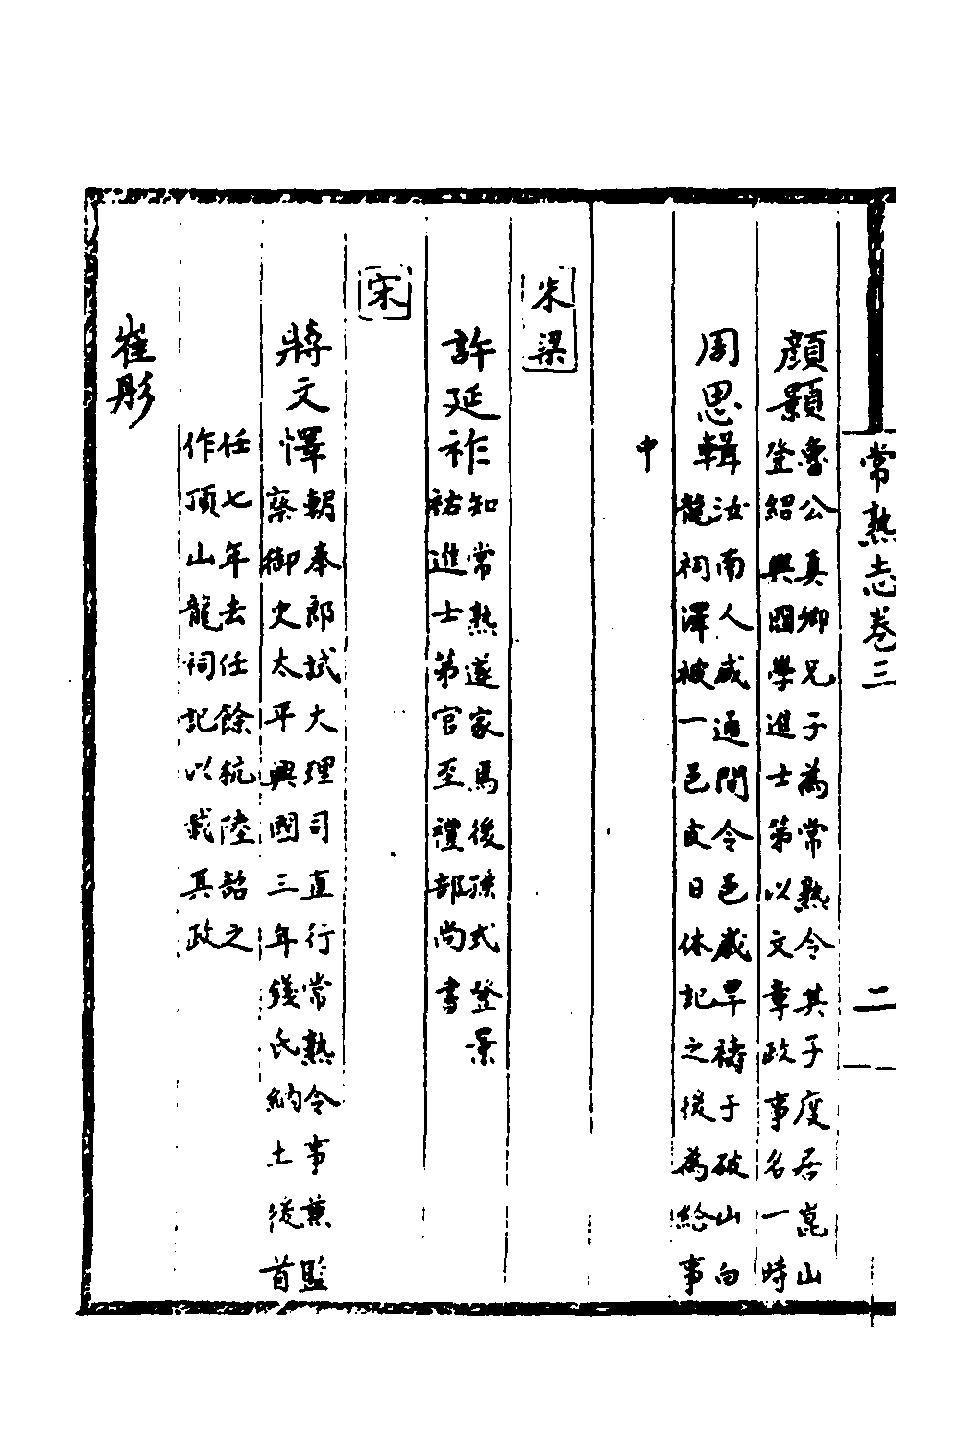 常熟志卷三
二
顏顥
魯公真卿兄子為常熟令其子度居崑山
登紹興國學進士第以文章政事名一時
周思輯
汝南人咸通間令邑歲旱禱于破山白
龍祠澤被一邑皮日休記之後為給事
中
朱梁
許延祚
知常熟遂家焉後孫式登景
祐進士第官至禮部尚書
宋
蔣文懌
朝奉郎試大理司直行常熟令事兼監
察御史太平興國三年錢氏納土後首
任七年去任餘杭陸韶之
作頂山龍祠記以載其政
崔彤